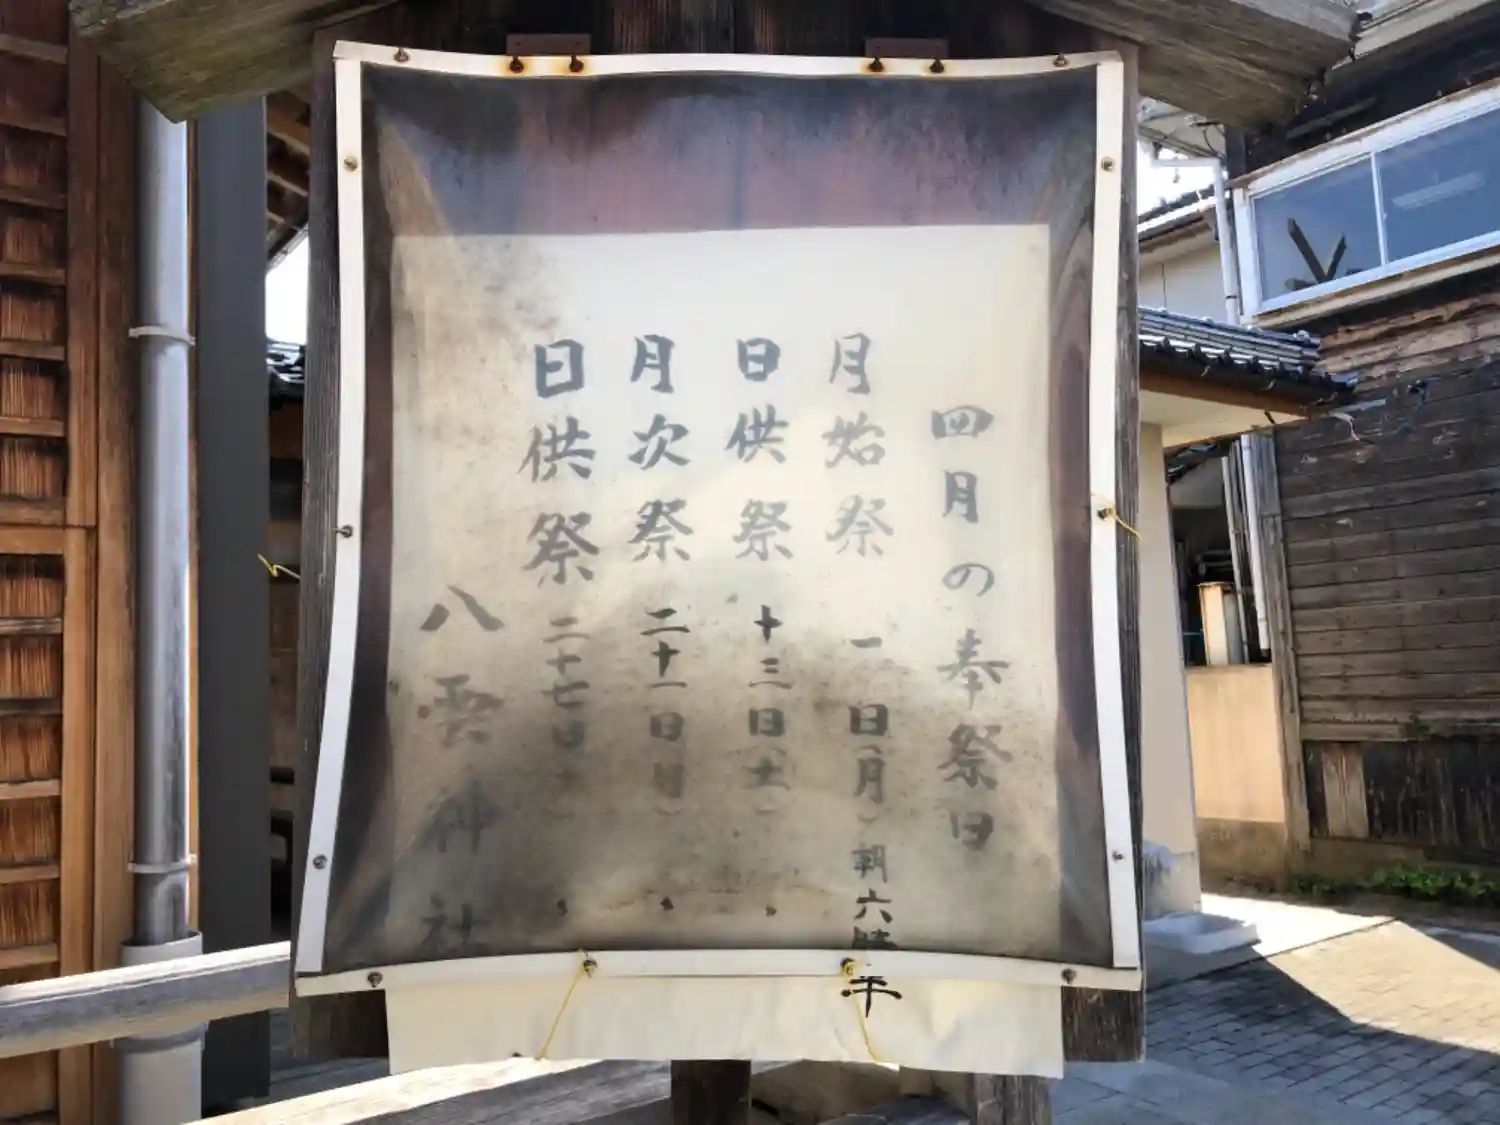 四月の奉祭日
月始祭 一日(月)朝六時半
日供祭 十三日(土) 〃
月次祭 二十一日(日) 〃
日供祭 二十七日(土) 〃
八雲神社